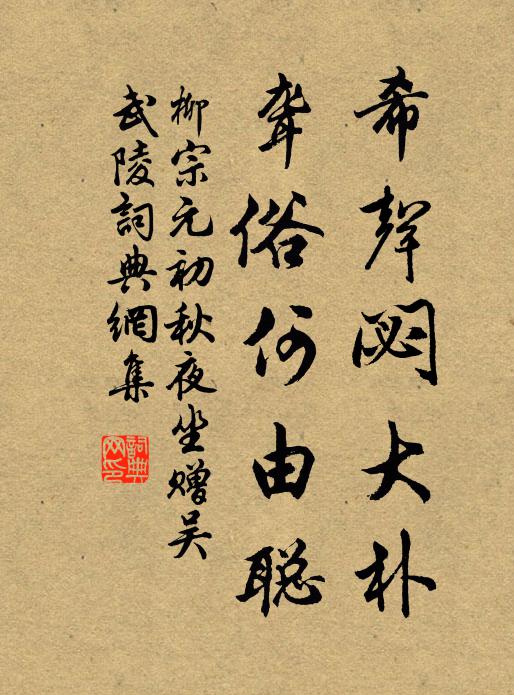 希聲閟大朴
聾俗何由聪
柳宗元初秋夜坐赠吴
武陵詞典網集
詞典
网印